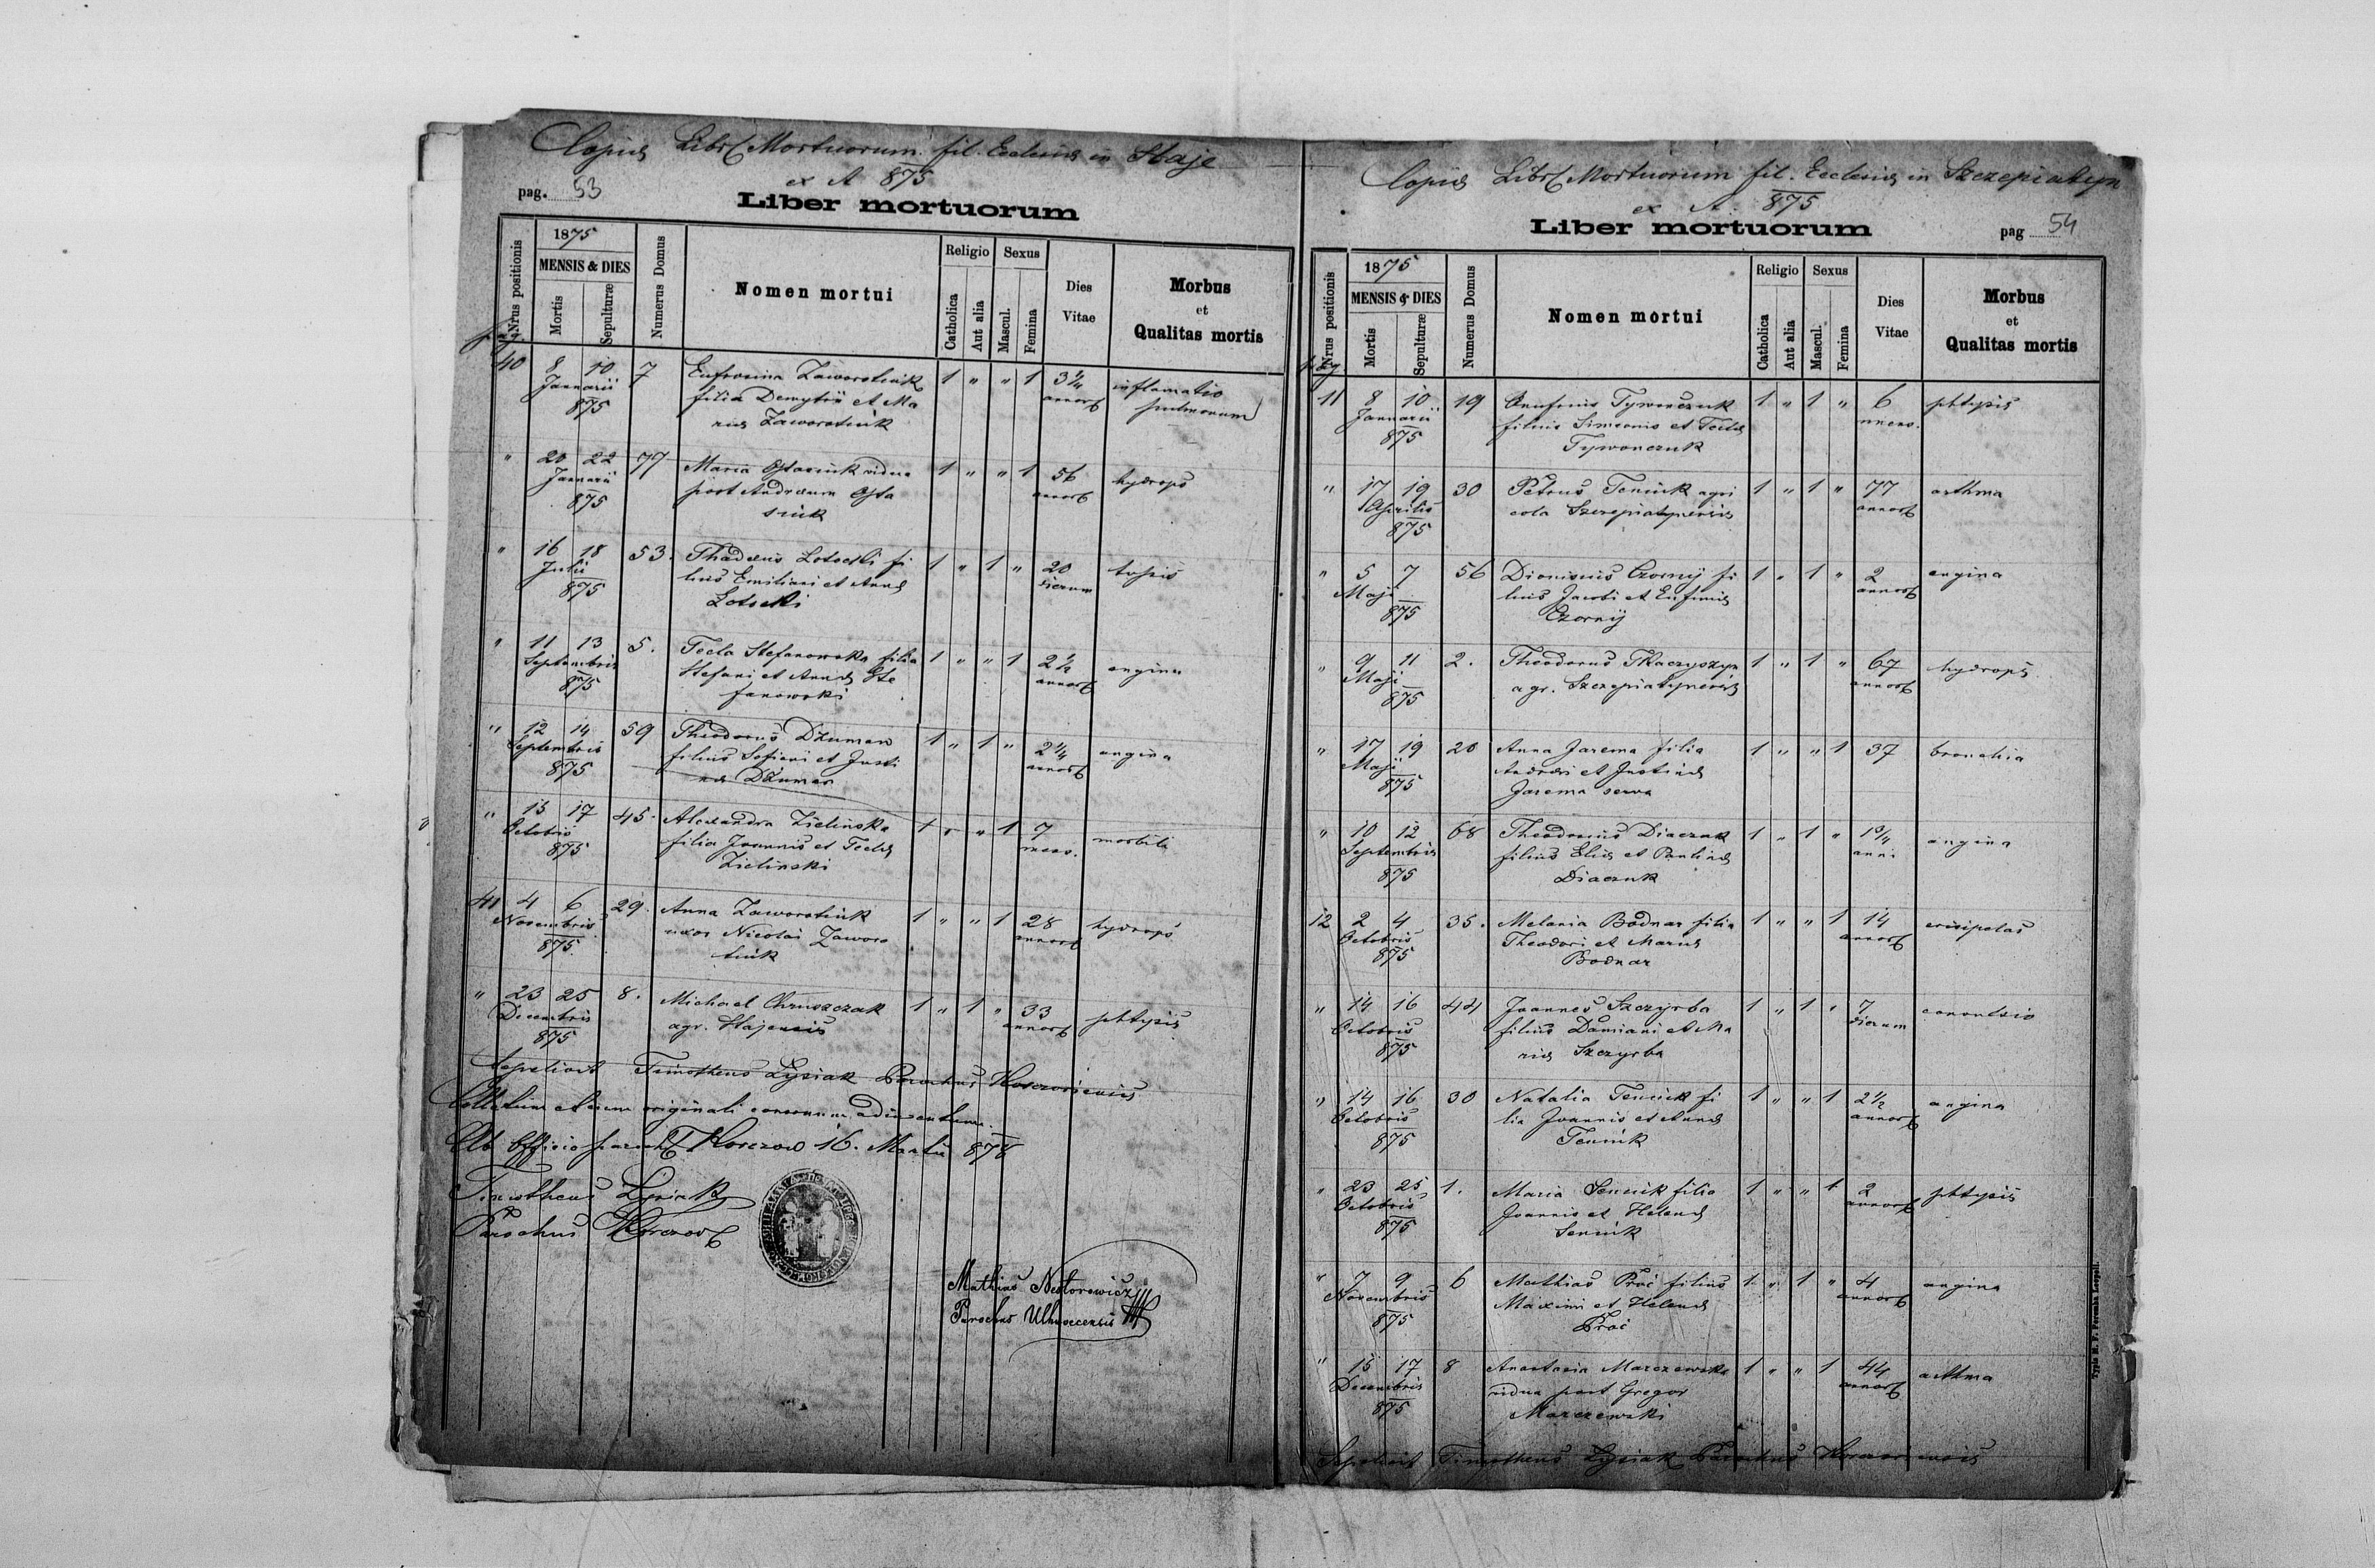 Copia Libri Mortuorum fil. Ecclesiæ in Staje
ex A 875
pag. 53
Liber mortuorum
Nrus positionis
1875
MENSIS & DIES
Mortis
Sepulturæ
Numerus Domus
Nomen mortui
Religio
Catholica
Aut alia
Sexus
Mascul.
Femina
Dies
Vitae
Morbus
et
Qualitas mortis
pag.
40 8 10 7 Eufrosina Zaworotiuk 1 " " 1 3 1/4 inflamatio
Januarii filia Demytrii et Ma annor pulmonum
875 riæ Zaworotiuk
" 20 22 77 Maria vidua 1 " " 1 56 hydrops
Januarii post Andream annor
875 siuk
" 16 18 53. Thadeus Lotocki fi 1 " 1 " 20 tussis
Julii lius Emiliani et Annæ dierum
875 Lotocki
" 11 13 5. Tecla Stefanowska filia 1 " " 1 2 1/2 angina
Septembris Stefani et Annæ Ste annor
875 fanowski
" 12 14 59 Theodorus Dzuman 1 " 1 " 2 1/4 angina
Septembris filius Stefani et Justi annor
875 næ Dzuman
" 15 17 45. Alexandra Zielinska 1 " " 1 7 morbili
Octobris filia Joannis et Teclæ mens.
875 Zielinski
41 4 6 29. Anna Zaworotiuk 1 " " 1 28 hydrops
Novembris uxor Nicolai Zaworo annor
875 tiuk
" 23 25 8. Michael Chruszczak 1 " 1 " 33 phtysis
Decembris agr. Stajensis annor
875
Sepelivit Timotheus Lysiak Parochus Korczoviensis
Collatum et cum originali consonum adinventum.
Ab Officio paroch Korczow 16. Martii 876
Timotheus Lysiak
Parochus Korczov
Mathias Nestorowicz
Parochus Uhnoviensis
Copia Libri Mortuorum fil. Ecclesiæ in Szczepiatyn
ex A. 875
Liber mortuorum
pag 54
Nrus positionis
1875
MENSIS & DIES
Mortis
Sepulturæ
Numerus Domus
Nomen mortui
Religio
Catholica
Aut alia
Sexus
Mascul.
Femina
Dies
Vitae
Morbus
et
Qualitas mortis
pag
11 8 10 19 Onufrius Tywonczuk 1 " 1 " 6 phtysis
Januarii filius Simeonis et Teclæ mens.
875 Tywonczuk
" 17 19 30 Petrus Teniuk agri 1 " 1 " 77 asthma
Aprilis cola Szczepiatynensis annor
875
" 5 7 56 Dionisius Czornij fi 1 " 1 " 2 angina
Maji lius Jacobi et Eufimiæ annor
875 Czornij
" 9 11 2. Theodorus Tkaczyszyn 1 " 1 " 67 hydrops
Maji agr. Szczepiatynensis annor
875
" 17 19 20 Anna Jarema filia 1 " " 1 37 bronchia
Maji Andreæ et Justinæ
875 Jarema serva
" 10 12 68 Theodosius Diaczuk 1 " 1 " 1 3/4 angina
Septembris filius Eliæ et Paulinæ anni
875 Diaczuk
12 2 4 35. Melania Bodnar filia 1 " " 1 14 erisipelas
Octobris Theodori et Mariæ annor
875 Bodnar
" 14 16 44 Joannes Szczyrba 1 " 1 " 7 convulsio
Octobris filius Damiani et Ma dierum
875 riæ Szczyrba
" 14 16 30 Natalia Teniuk fi 1 " " 1 2 1/2 angina
Octobris lia Joannis et Annæ annor
875 Teniuk
" 23 25 1. Maria Seniuk filia 1 " " 1 2 phtysis
Octobris Joannis et Helenæ annor
875 Seniuk
" 7 9 6 Mathias Proć filius 1 " 1 " 4 angina
Novembris Maximi et Helenæ annor
875 Proć
" 15 17 8 Anastasia Marczewska 1 " " 1 44 asthma
Decembris vidua post Gregor annor
875 Marczewski
Sepelivit Timotheus Lysiak Parochus Korczoviensis